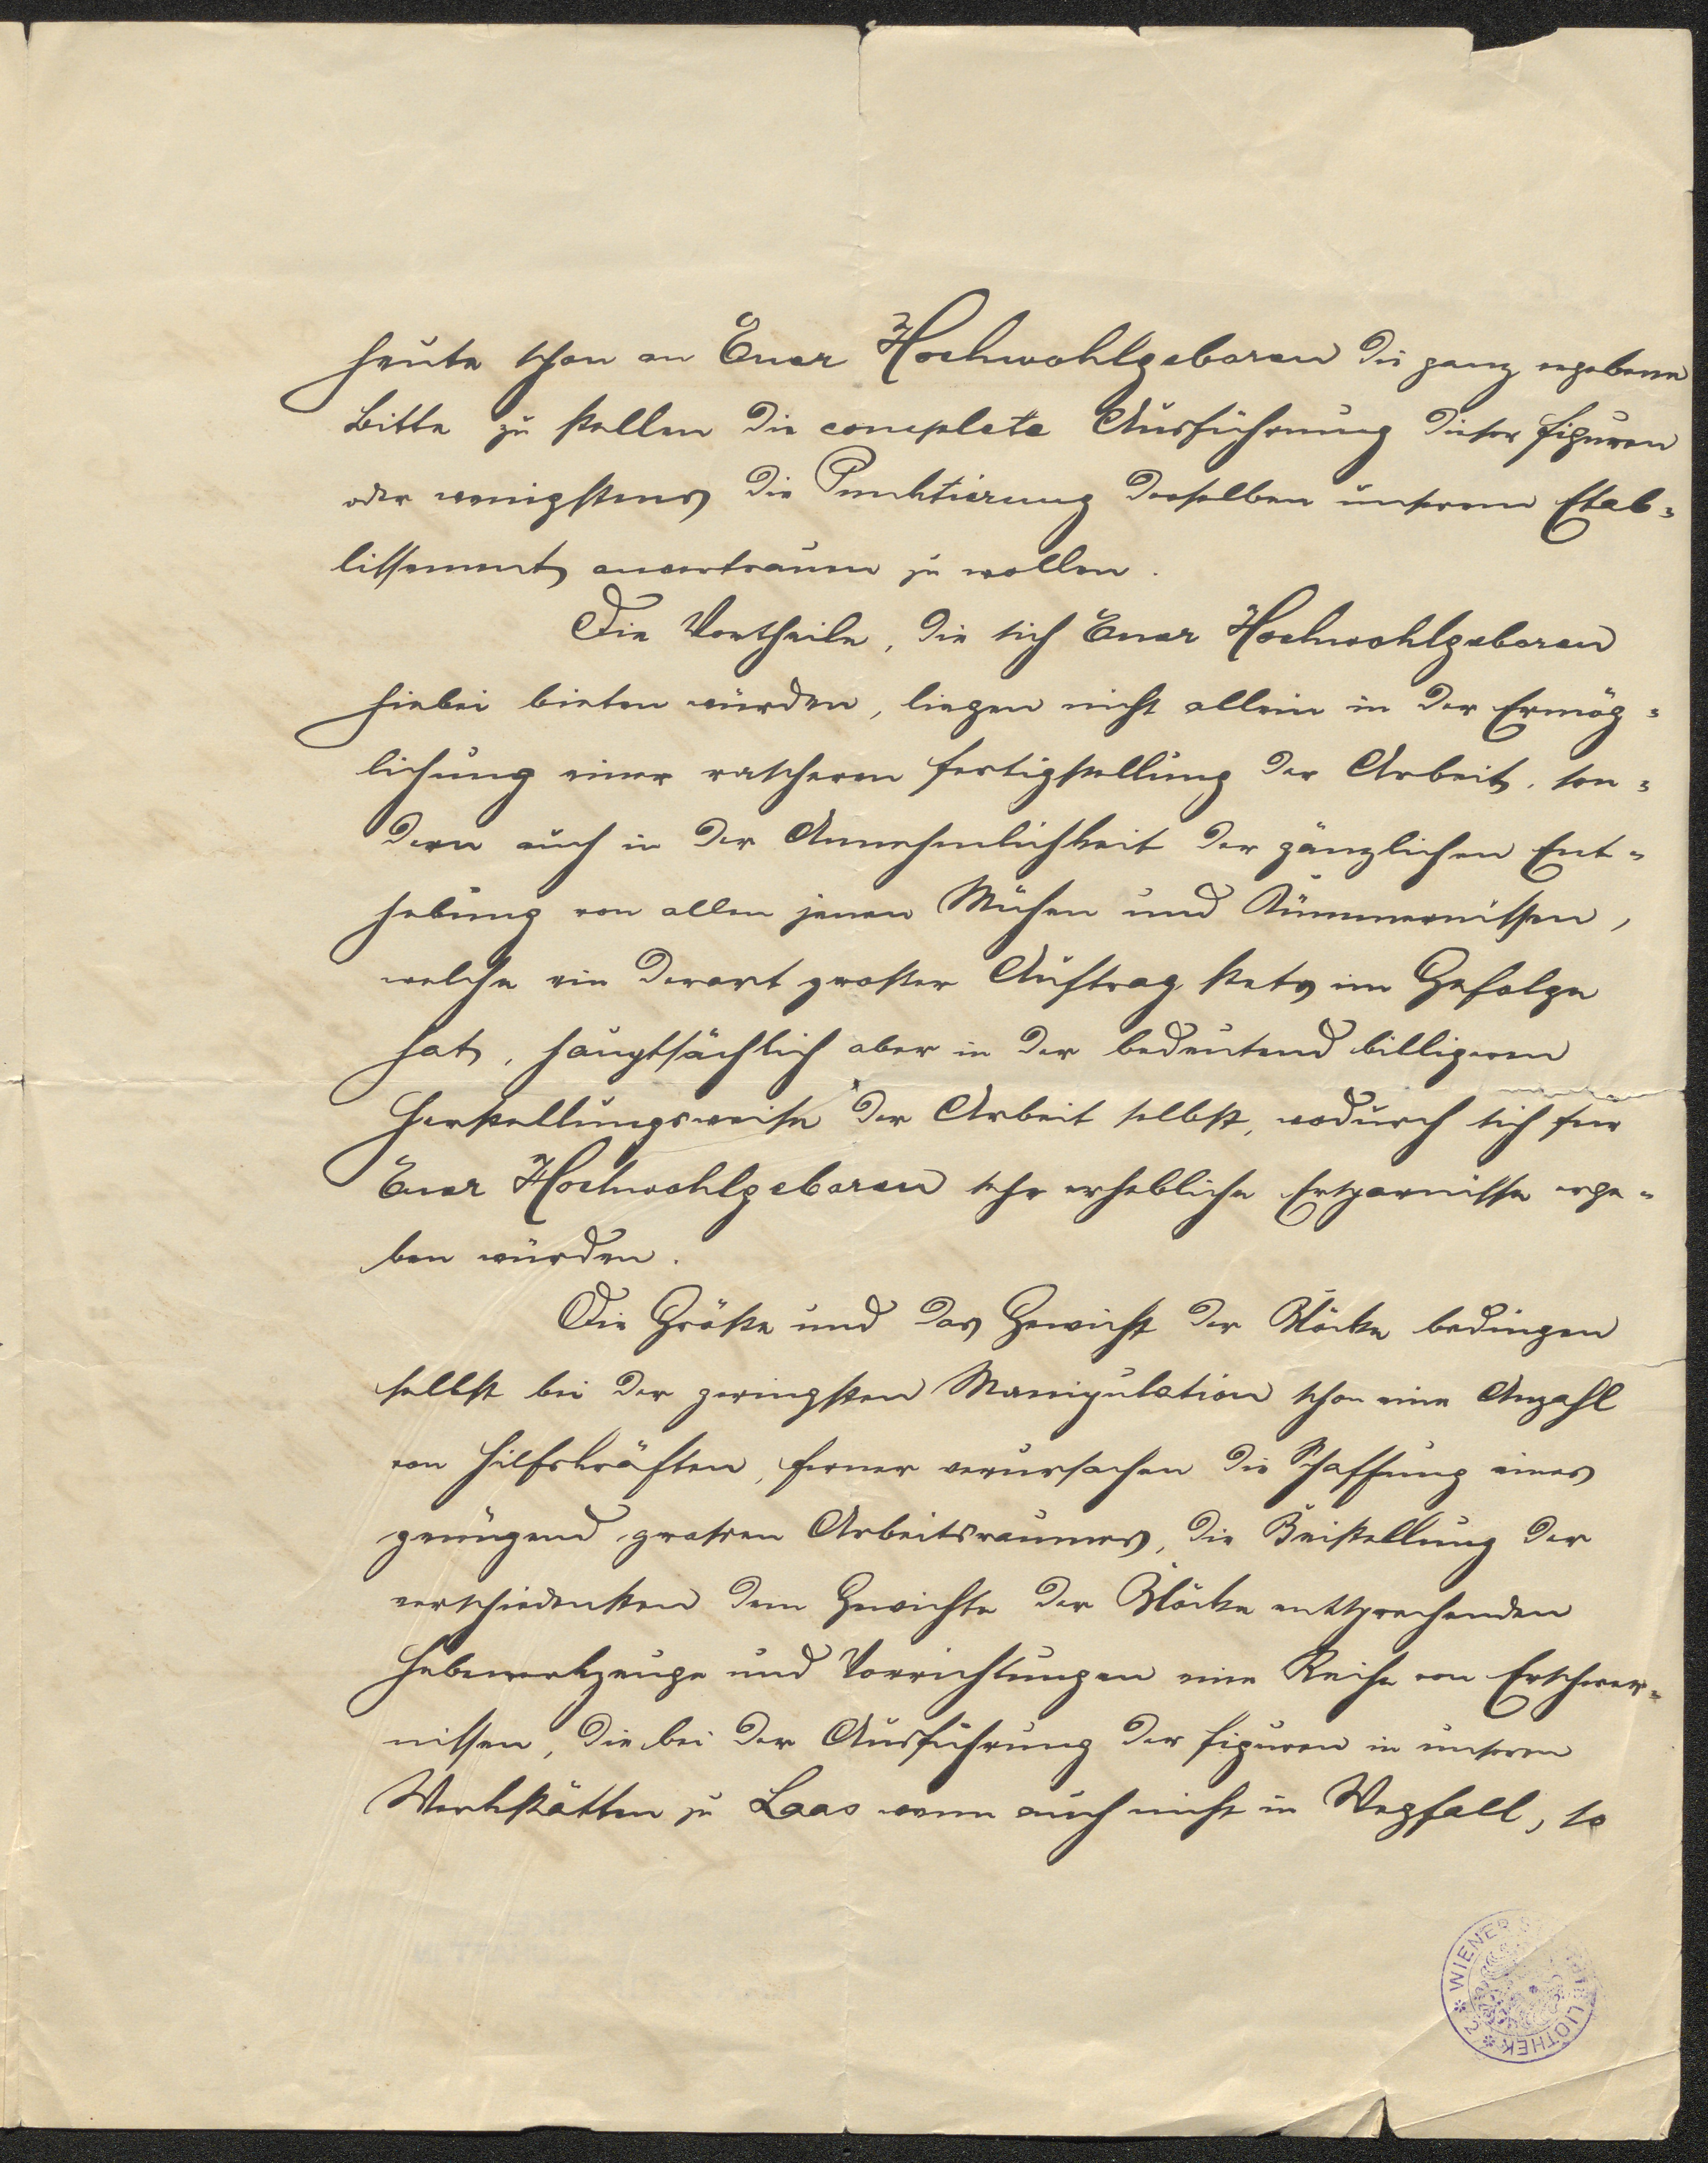 heute schon an Euer Hochwohlgeboren die ganz ergebene
Bitte zu stellen die complete Ausführung dieser Figuren
oder wenigstens die Punktierung derselben unserem Etab=
lissement anvertrauen zu wollen.
Die Vortheile, die sich Euer Hochwohlgeboren
hiebei bieten würden, liegen nicht allein in der Ermög=
lichung einer rascheren Fertigstellung der Arbeit, son=
dern auch in der Annehmlichkeit der gänzlichen Ent=
hebung von allen jenen Mühen und Kümmernissen,
welche ein derart großer Auftrag stets im Gefolge
hat, hauptsächlich aber in der bedeutend billigeren
Herstellungsweise der Arbeit selbst, wodurch sich für
Euer Hochwohlgeboren sehr erhebliche Ersparnisse erge=
ben würden.
Die Größe und das Gewicht der Blöcke bedingen
selbst bei der geringsten Manipulation schon eine Anzahl
von Hilfskräften, ferner verursachen die Schaffung eines
genügend großen Arbeitsraumes, die Beistellung der
verschiedensten dem Gewichte der Blöcke entsprechenden
Hebewerkzeuge und Vorrichtungen eine Reihe von Erschwer=
nissen, die bei der Ausführung der Figuren in unseren
Werkstätten zu Laas wenn auch nicht in Wegfall, so
WIENER
BIBLIOTHEK